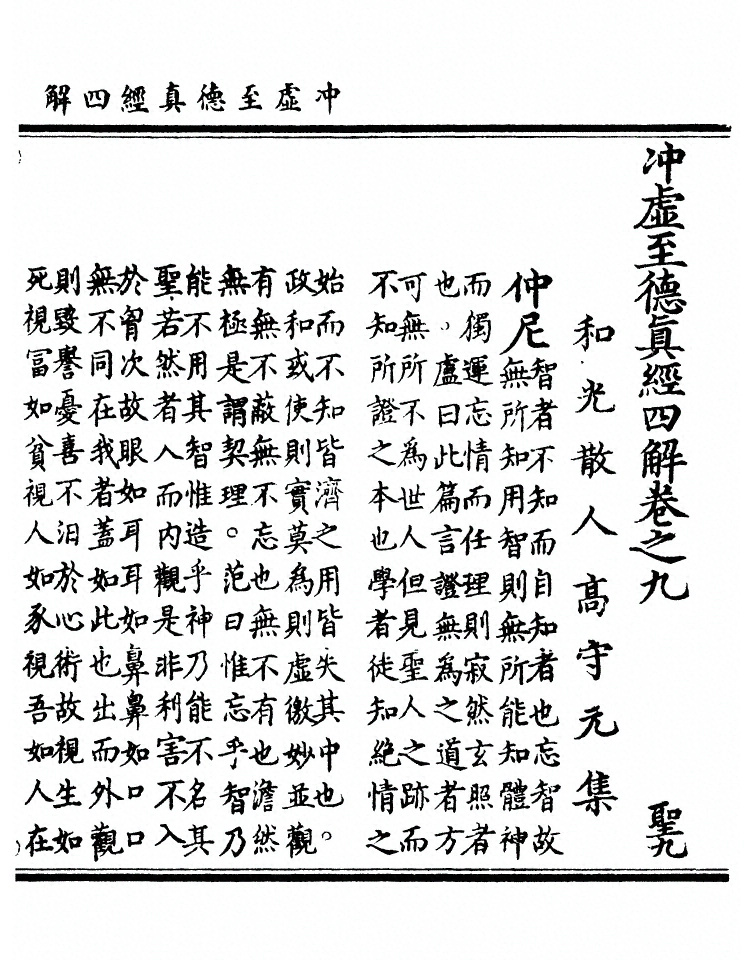 冲虛至德真經四解
冲虛至德真經四解卷之九 聖九
和光散人高守元集
仲尼
智者不知而自知者也忘智故
無所知用智則無所能知體神
而獨運忘情而任理則寂然玄照者
也。盧曰此篇言證無為之道者方
可無所不為世人但見聖人之跡而
不知所證之本也學者徒知絕情之
始而不知皆濟之用皆失其中也。
政和或使則實莫為則虛徼妙並觀
有無不蔽無不忘也無不有也澹然
無極是謂契理。范曰惟忘乎智乃
能不用其智惟造乎神乃能不名其
聖若然者入而內觀是非利害不入
於胷次故眼如耳耳如鼻鼻如口口
無不同在我者蓋如此也出而外觀
則毀譽憂喜不汨於心術故視生如
死視富如貧視人如豕視吾如人在